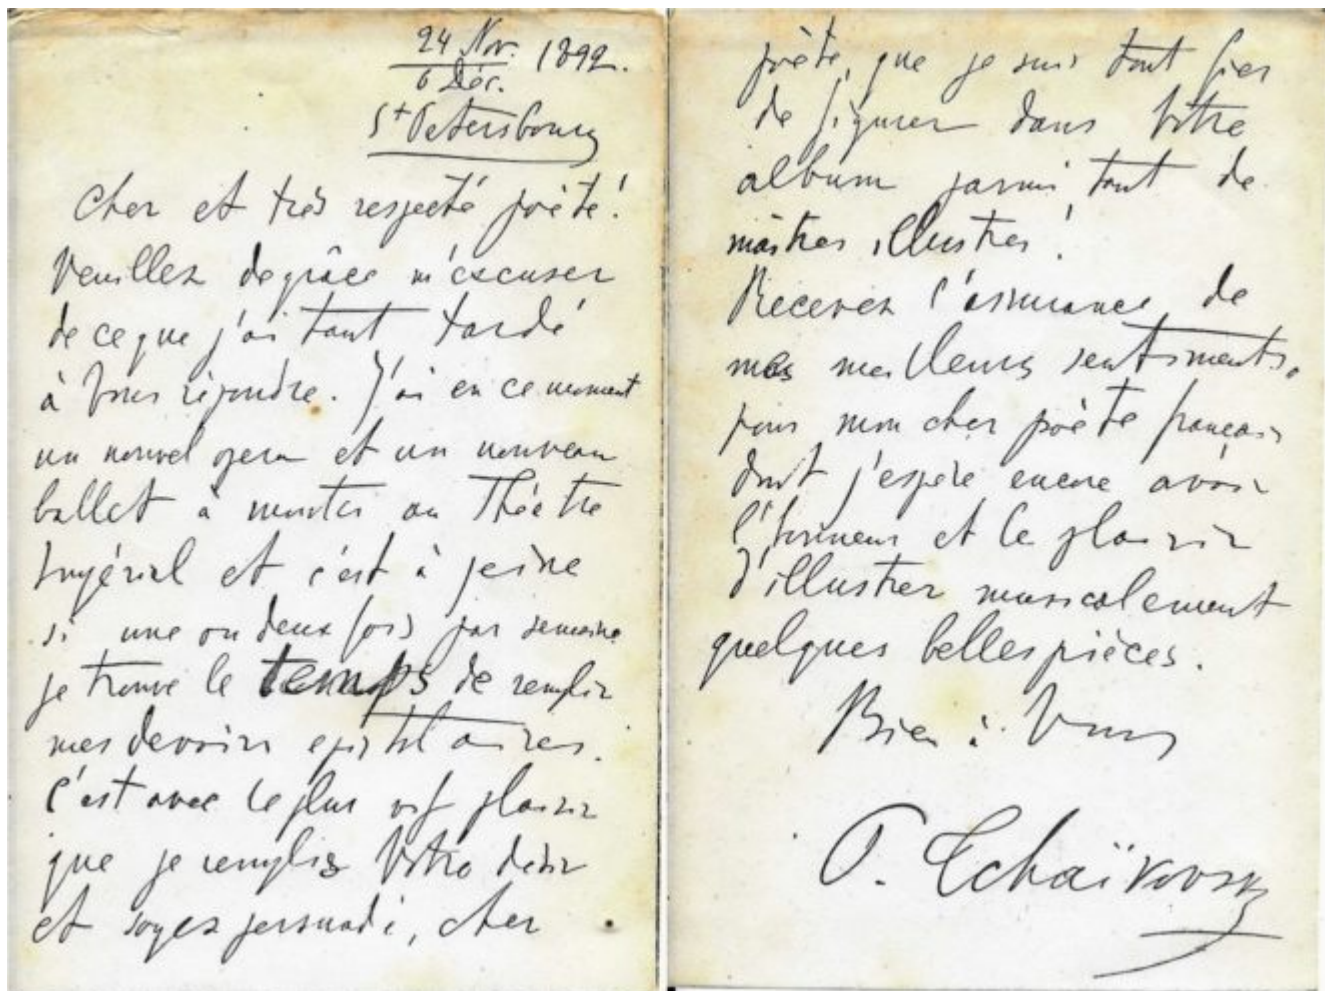 24 Nov. 1892.
6 Déc.
St Petersbourg
Cher et très respecté poète!
Veuillez de grâce m'excuser
de ce que j'ai tant tardé
à Vous répondre. J'ai en ce moment
un nouvel opera et un nouveau
ballet à monter au Théâtre
Impérial et c'est à peine
si une ou deux fois par semaine
je trouve le temps de remplir
mes devoirs epistolaires.
C'est avec le plus vif plaisir
que je remplis Votre désir
et soyez persuadé, cher
poète, que je suis tout fier
de figurer dans Votre
album parmi tant de
maîtres illustres!
Recevez l'assurance de
mes meilleurs sentiments.
pour mon cher poète français
dont j'espère encore avoir
l'honneur et le plaisir
d'illustrer musicalement
quelques belles pièces.
Bien à Vous
P. Tchaïkovsky